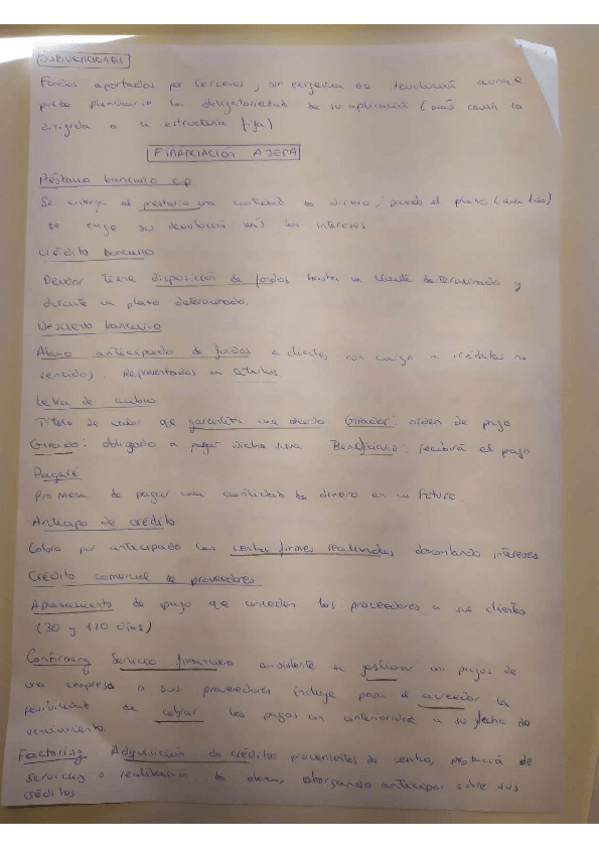 SUBVENCIONES
Fondos aportados por terceros, sin exigencia de devolución aunque
la obligatoriedad de su aplicación (más común la
dirigida a la estructura fija)
FINANCIACIÓN AJENA
Préstamo bancario cp
Se entrega al prestatario una cantidad de dinero, pasado el plazo
se exige su devolución más los intereses
Crédito bancario
Deudor tiene disposición de fondos hasta un límite determinado y
durante un plazo determinado.
Descuento bancario
Abono anticipado de fondos a clientes, con cargo a créditos no
vencidos. Representados en títulos
Letra de cambio
Título de valor que garantiza una deuda Girador: orden de pago
Girado: obligado a pagar dicha Beneficiario: recibirá el pago
Pagaré
Promesa de pagar una cantidad de dinero en un futuro.
Anticipo de crédito
Cobro por anticipado las ventas firmes realizadas descontando intereses
Crédito comercial de proveedores
Aplazamiento de pago que conceden los proveedores a sus clientes
(30 y 120 días)
Confirming Servicio financiero consistente en gestionar los pagos de
una empresa a sus proveedores incluye para el acreedor la
posibilidad de cobrar los pagos con anterioridad a su fecha de
vencimiento.
Factoring Adquisición de créditos provenientes de ventas, de
servicios o realización de obras, otorgando anticipos sobre sus
créditos